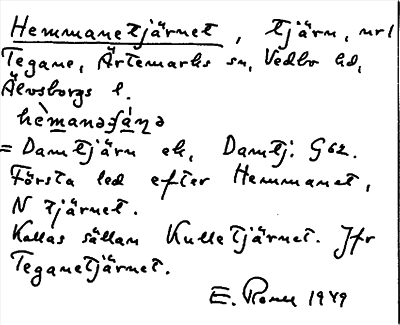 Hemmanetjärnet, tjärn, nr 1
Tegane, Ärtemarks sn, Vedbo hd,
Älvsborgs l.
hèmanəʃä́ṇə
= Damtjärn ek, Damtj. G62.
Första led efter Hemmanet,
N tjärnet.
Kallas sällan Kulletjärnet. Jfr
Teganetjärnet.
E. 1949